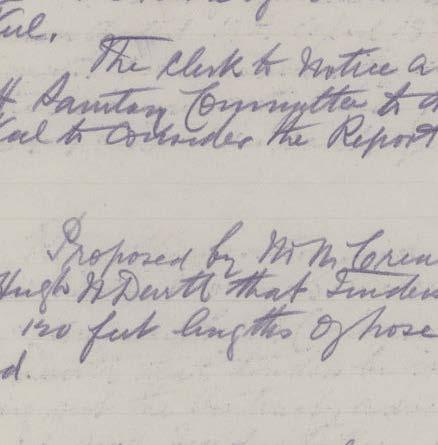 The Clerk to Notice a
Sanitary Committee to
to consider the Report
Proposed by Mr M
Hugh that Tenders
120 feet lengths of hose
d.